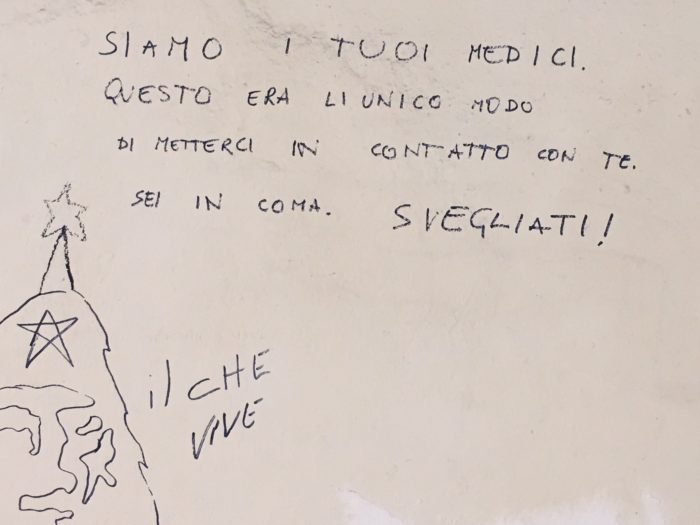 SIAMO I TUOI MEDICI.
QUESTO ERA L'UNICO MODO
DI METTERCI IN CONTATTO CON TE.
SEI IN COMA. SVEGLIATI!
il CHE
VIVE